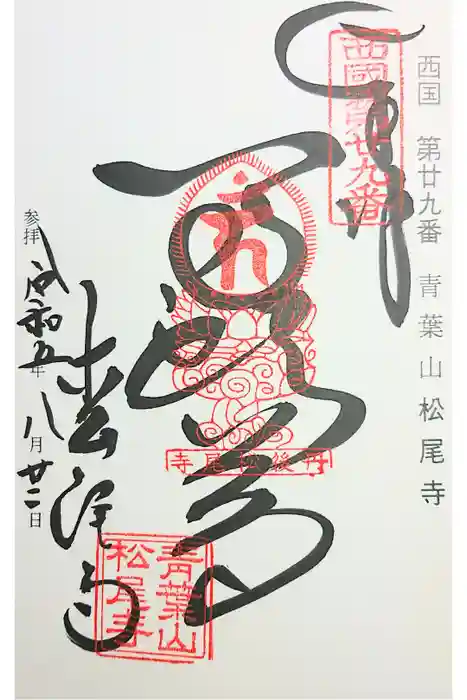 西国 第廿九番 青葉山 松尾寺
奉拝
西國第廿九番
馬頭尊
丹後松尾寺
松尾寺
青葉山
松尾寺
参拝 令和五年 八月廿二日